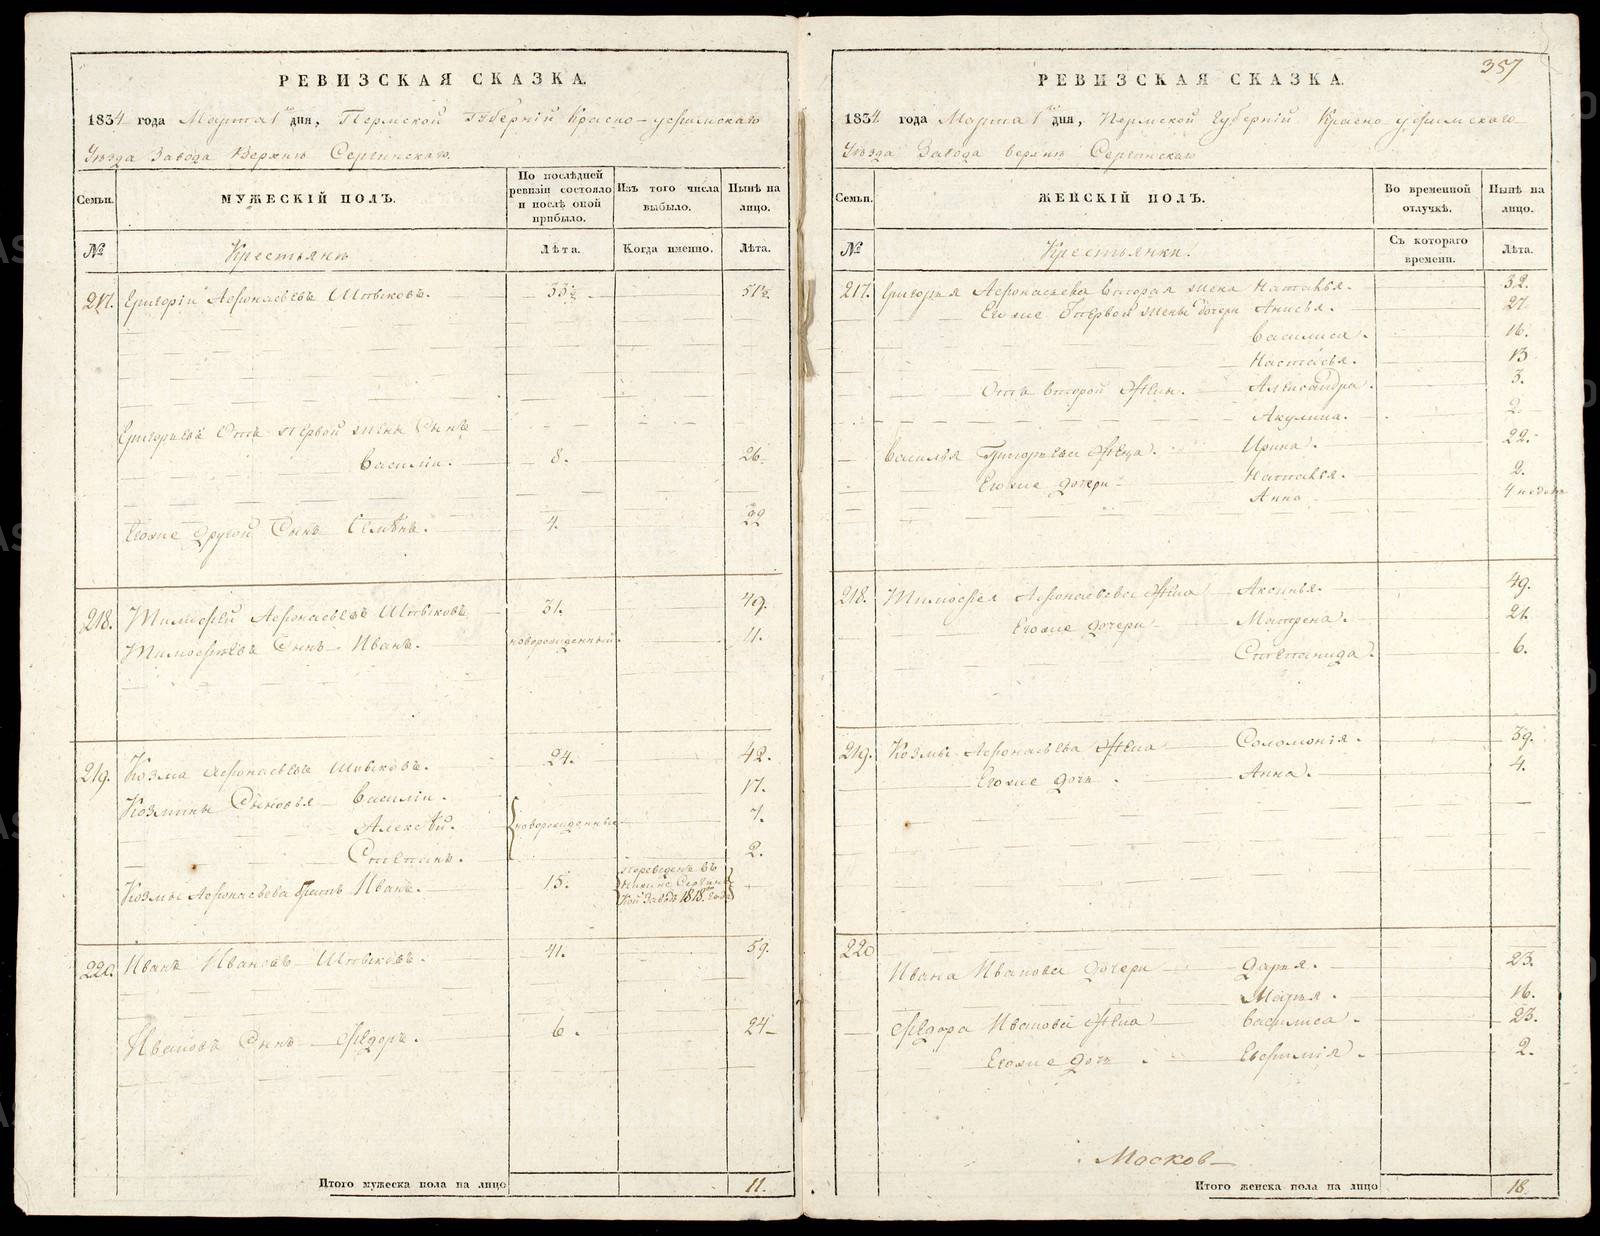 РЕВИЗСКАЯ СКАЗКА.
1834 года Марта 1 дня, Пермской Губерніи Красно-уфимскаго
Уѣзда Завода Верхне Сергинскаго.
Семьи.
МУЖЕСКІЙ ПОЛЪ.
По послѣдней ревизіи состояло и послѣ оной прибыло.
Изъ того числа выбыло.
Нынѣ на лицо.
№
Крестьяне
Лѣта.
Когда именно.
Лѣта.
217. Григорій Афонасьевъ Штыковъ. 33½ 51½
Григорьевъ Отъ первой жены Сынъ
Василій. 8. 26
Егоже другой Сынъ Семенъ. 4. 22
218. Тимофей Афонасьевъ Штыковъ 31. 49.
Тимофеевъ Сынъ Иванъ. новорожденный. 11.
219. Козма Афонасьевъ Штыковъ. 24. 42.
Козмины Сыновья Василій. 17.
Алексѣй. новорожденные 7.
Степанъ. 2.
Козмы Афонасьева братъ Иванъ. 15. Переведенъ въ Нижне Сергинской Заводъ 1818. года
220. Иванъ Ивановъ Штыковъ. 41. 59.
Ивановъ Сынъ Федоръ. 6. 24
Итого мужеска пола на лицо 11.
357
РЕВИЗСКАЯ СКАЗКА.
1834 года Марта 1 дня, Пермской Губерніи Красно уфимскаго
Уѣзда Завода верхне Сергинскаго
Семьи.
ЖЕНСКІЙ ПОЛЪ.
Во временной отлучкѣ.
Нынѣ на лицо.
№
Крестьянки.
Съ котораго времени.
Лѣта.
217. Григорья Афонасьева вторая жена Наталья. 32.
Егоже Первой жены дочери Анисья. 27.
Василиса. 16.
Настасья. 13
Отъ второй Жены. Александра. 3.
Акулина. 2.
Василья Григорьева Жена. Ирина. 22.
Егоже дочери Наталья. 2.
Анна 4 недели
218. Тимофея Афонасьева Жена Аксинья. 49.
Егоже дочери Матрена. 21.
Степанида. 6.
219. Козмы Афонасьева Жена Соломонія. 39.
Егоже дочь. Анна. 4.
220
Ивана Иванова дочери Дарья. 23.
Марья. 16.
Федора Иванова Жена Василиса. 23.
Егоже дочь. Евфимія. 2.
Москов
Итого женска пола на лицо 18.